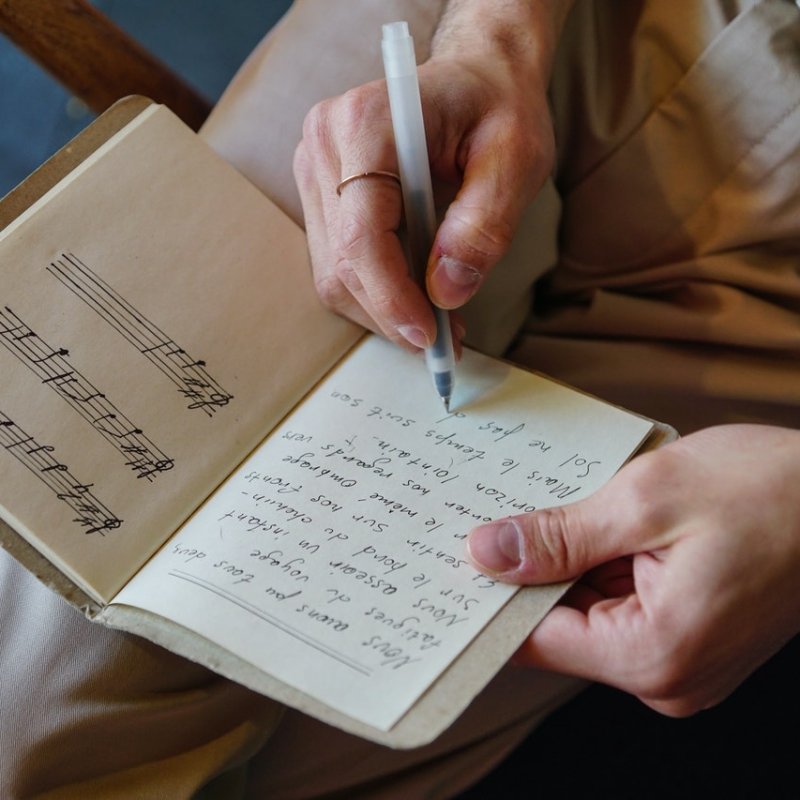 Nous avions pu tous deux
fatigués du voyage
Nous asseoir un instant
Sur le bord du chemin-
Et sentir sur nos fronts
le même Ombrage
porter nos regards vers
lointain.
Mais le temps suit son
Sol ne pas